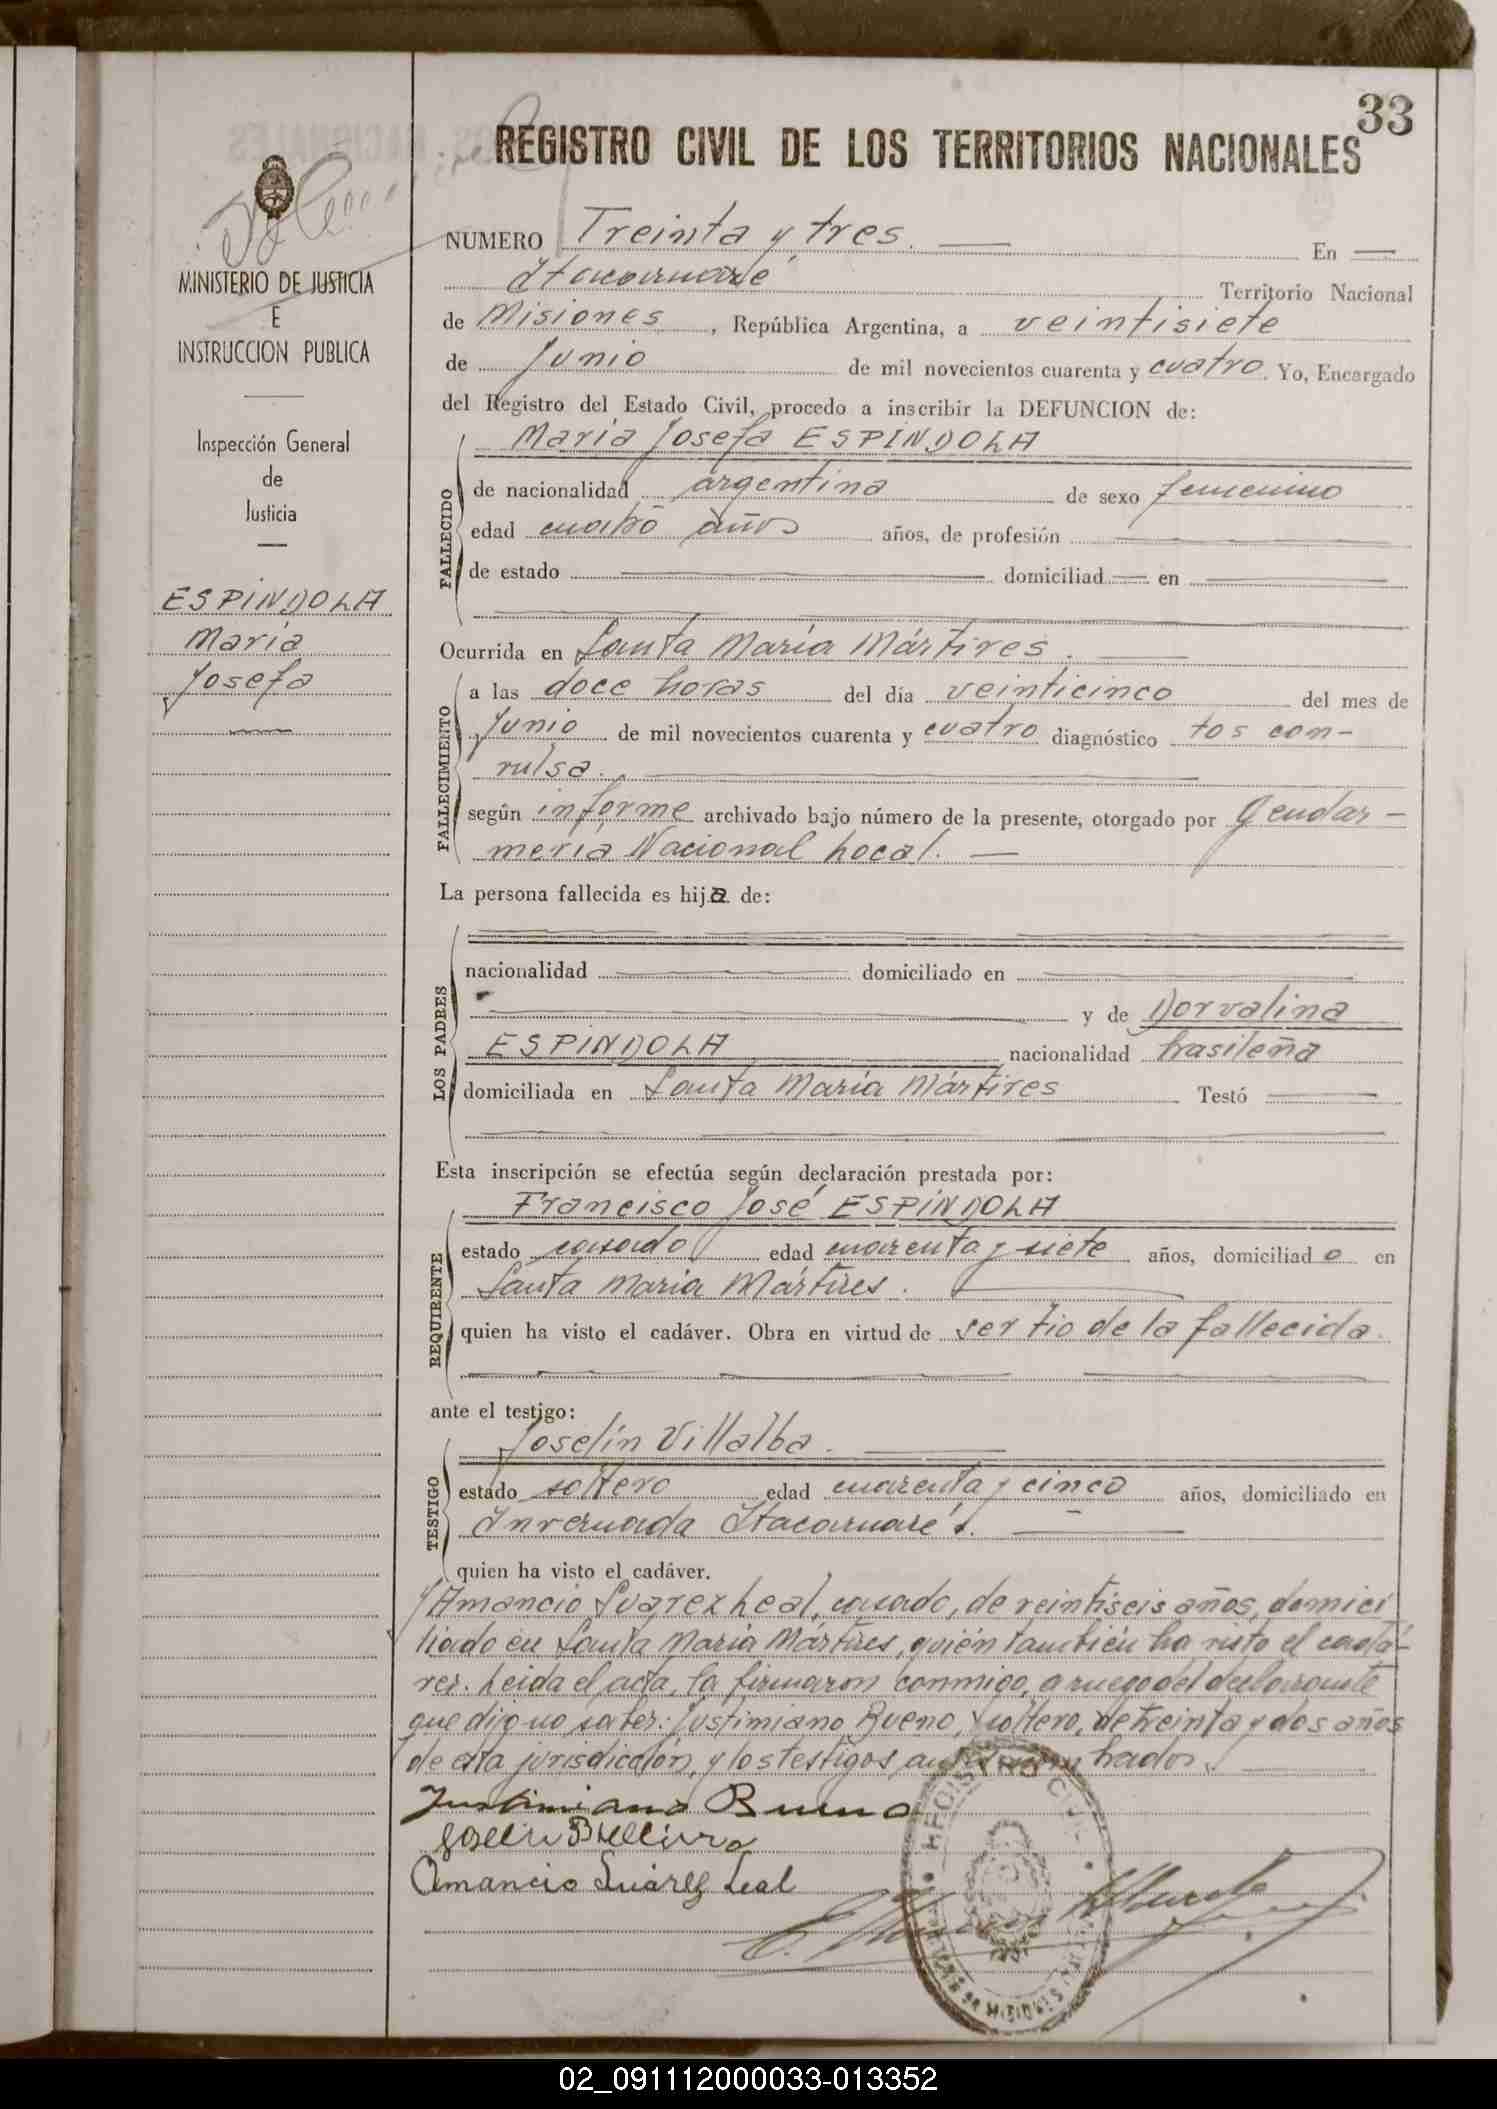 33
REGISTRO CIVIL DE LOS TERRITORIOS NACIONALES
MINISTERIO DE JUSTICIA
E
INSTRUCCION PUBLICA
Inspección General
de
Justicia
ESPÍNDOLA
María
Josefa
NUMERO Treinta y tres. En
Itacaruaré Territorio Nacional
de Misiones, República Argentina, a veintisiete
de Junio de mil novecientos cuarenta y cuatro. Yo, Encargado
del Registro del Estado Civil, procedo a inscribir la DEFUNCION de:
María Josefa ESPÍNDOLA
FALLECIDO
de nacionalidad argentina de sexo femenino
edad cuatro años años, de profesión
de estado domiciliad en
Ocurrida en Santa María Mártires.
FALLECIMIENTO
a las doce horas del día veinticinco del mes de
Junio de mil novecientos cuarenta y cuatro diagnóstico tos con-
vulsa.
según informe archivado bajo número de la presente, otorgado por Gendar-
mería Nacional Local.
La persona fallecida es hija de:
LOS PADRES
nacionalidad domiciliado en
y de Dorvalina
ESPÍNDOLA nacionalidad brasileña
domiciliada en Santa María Mártires Testó
Esta inscripción se efectúa según declaración prestada por:
REQUIRENTE
Francisco José ESPÍNDOLA
estado casado edad cuarenta y siete años, domiciliado en
Santa María Mártires.
quien ha visto el cadáver. Obra en virtud de ser tio de la fallecida.
ante el testigo:
TESTIGO
Joselín Villalba.
estado soltero edad cuarenta y cinco años, domiciliado en
Invernada Itacaruaré
quien ha visto el cadáver.
y Amancio Suarez Leal, casado, de veintiseis años, domici
liado en Santa María Mártires, quién también ha visto el cadá-
ver. Leida el acta, la firmaron conmigo, a ruego del declarante
que dijo no saber: Justimiano Bueno, soltero, de treinta y dos años
de esta jurisdicción, y los testigos
Justimiano Bueno
Amancio Suárez Leal
REGISTRO CIVIL
02_091112000033-013352